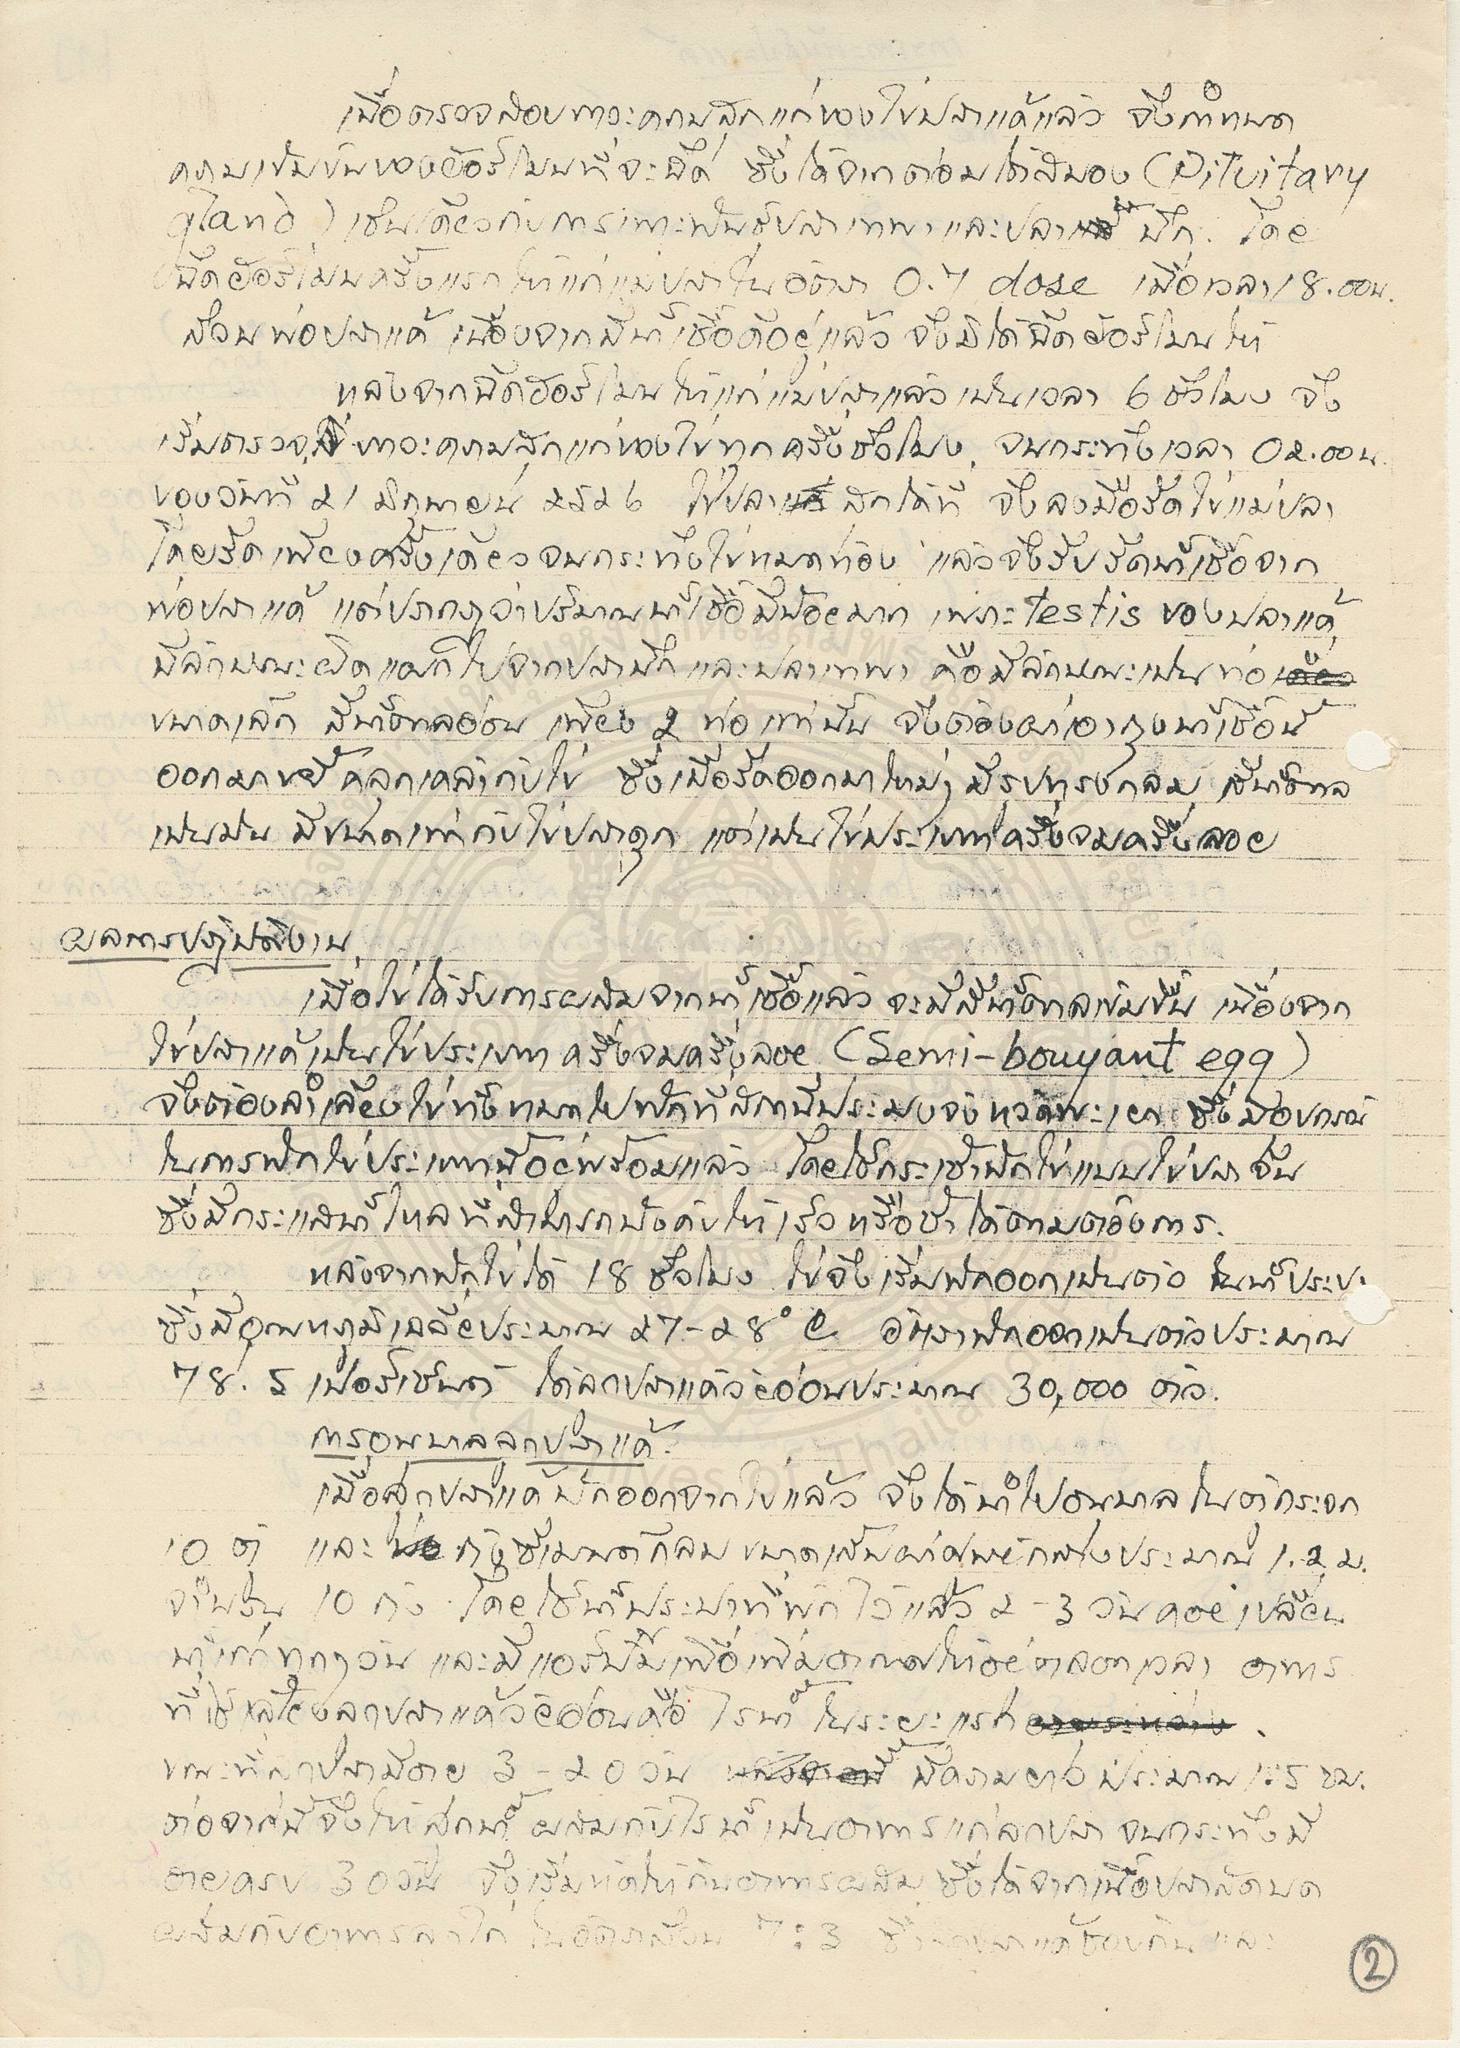 เมื่อตรวจสอบภาวะความสุกแก่ของไข่ปลาแค้แล้ว จึงกำหนด
ความเข้มข้นของฮอร์โมนที่จะฉีด ซึ่งได้จากต่อมใต้สมอง (Pituitary
gland) เช่นเดียวกับการเพาะพันธุ์ปลาเทพาและปลาบึก. โดย
ฉีดฮอร์โมนครั้งแรกให้แก่แม่ปลาในอัตรา 0.7 dose เมื่อเวลา 18.00น.
ส่วนพ่อปลาแค้ เนื่องจากมีน้ำเชื้อดีอยู่แล้ว จึงมิได้ฉีดฮอร์โมนให้
หลังจากฉีดฮอร์โมนให้แก่แม่ปลาแล้วเป็นเวลา 6 ชั่วโมง จึง
เริ่มตรวจภาวะความสุกแก่ของไข่ทุกครึ่งชั่วโมง จนกระทั่งเวลา 02.00น.
ของวันที่ 21 มิถุนายน 2526 ไข่ปลาสุกได้ที่ จึงลงมือรีดไข่แม่ปลา
โดยรีดเพียงครั้งเดียวจนกระทั่งไข่หมดท้อง แล้วจึงรีบรีดน้ำเชื้อจาก
พ่อปลาแค้ แต่ปรากฏว่าปริมาณน้ำเชื้อมีน้อยมาก เพราะ testis ของปลาแค้
มีลักษณะผิดแผกไปจากปลาบึกและปลาเทพา คือมีลักษณะเป็นท่อ
ขนาดเล็ก สีน้ำตาลอ่อน เพียง 2 ท่อเท่านั้น จึงต้องผ่าเอาถุงน้ำเชื้อนี้
ออกมาขยี้คลุกเคล้ากับไข่ ซึ่งเมื่อรีดออกมาใหม่ๆ มีรูปทรงกลม สีน้ำตาล
เป็นมัน มีขนาดเท่ากับไข่ปลาดุก แต่เป็นไข่ประเภทครึ่งจมครึ่งลอย
ผลการปฏิบัติงาน
เมื่อไข่ได้รับการผสมจากน้ำเชื้อแล้ว จะมีสีน้ำตาลเข้มขึ้น เนื่องจาก
ไข่ปลาแค้เป็นไข่ประเภทครึ่งจมครึ่งลอย (Semi-bouyant egg)
จึงต้องลำเลียงไข่ทั้งหมดไปฟักที่สถานีประมงจังหวัดพะเยา ซึ่งมีอุปกรณ์
ในการฟักไข่ประเภทนี้อยู่พร้อมแล้ว โดยใช้กระเช้าฟักไข่แบบไข่ปลาจีน
ซึ่งมีกระแสน้ำไหลที่สามารถบังคับให้เร็วหรือช้าได้ตามต้องการ.
หลังจากฟักไข่ได้ 18 ชั่วโมง ไข่จึงเริ่มฟักออกเป็นตัว ในน้ำประปา
ซึ่งมีอุณหภูมิเฉลี่ยประมาณ 27-28°C อัตราฟักออกเป็นตัวประมาณ
78.5 เปอร์เซ็นต์ ได้ลูกปลาแค้วัยอ่อนประมาณ 30,000 ตัว.
การอนุบาลลูกปลาแค้.
เมื่อลูกปลาแค้ฟักออกจากไข่แล้ว จึงได้นำไปอนุบาลในตู้กระจก
10 ตู้ และถังซีเมนต์กลม ขนาดเส้นผ่าศูนย์กลางประมาณ 1.2 ม.
จำนวน 10 ถัง โดยใช้น้ำประปาที่พักไว้แล้ว 2-3 วัน คอยเปลี่ยน
น้ำเก่าทุกๆวัน และมีแอร์ปั๊มเพื่อเพิ่มอากาศให้อยู่ตลอดเวลา อาหาร
ที่ใช้เลี้ยงลูกปลาแค้วัยอ่อนคือ ไรน้ำ ในระยะแรก
ขณะที่ลูกปลามีอายุ 3-20 วัน มีความยาวประมาณ 1.5 ซม.
ต่อจากนี้จึงให้ลูกน้ำผสมกับไรน้ำเป็นอาหารแก่ลูกปลา จนกระทั่งมี
อายุครบ 30 วัน จึงเริ่มหัดให้กินอาหารผสม ซึ่งได้จากเนื้อปลาสดบด
ผสมกับอาหารลูกไก่ ในอัตราส่วน 7:3 ซึ่งลูกปลาแค้ชอบกินและ
②